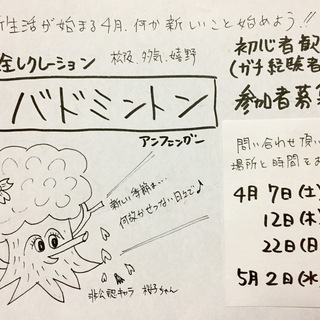 新生活が始まる4月、何か新しいこと始めよう!!
全レクレーション
松阪、多気、嬉野
初心者歓
(ガチ経験者
バドミントン
参加者募集
アンフニングー
新しい季節は…
何故かせつない日立で♪
問い合わせ頂い
場所と時間をお
4月7日(土)
12日(木)
22日(日)
5月2日(水)
非公認キャラ 桜子ちゃん